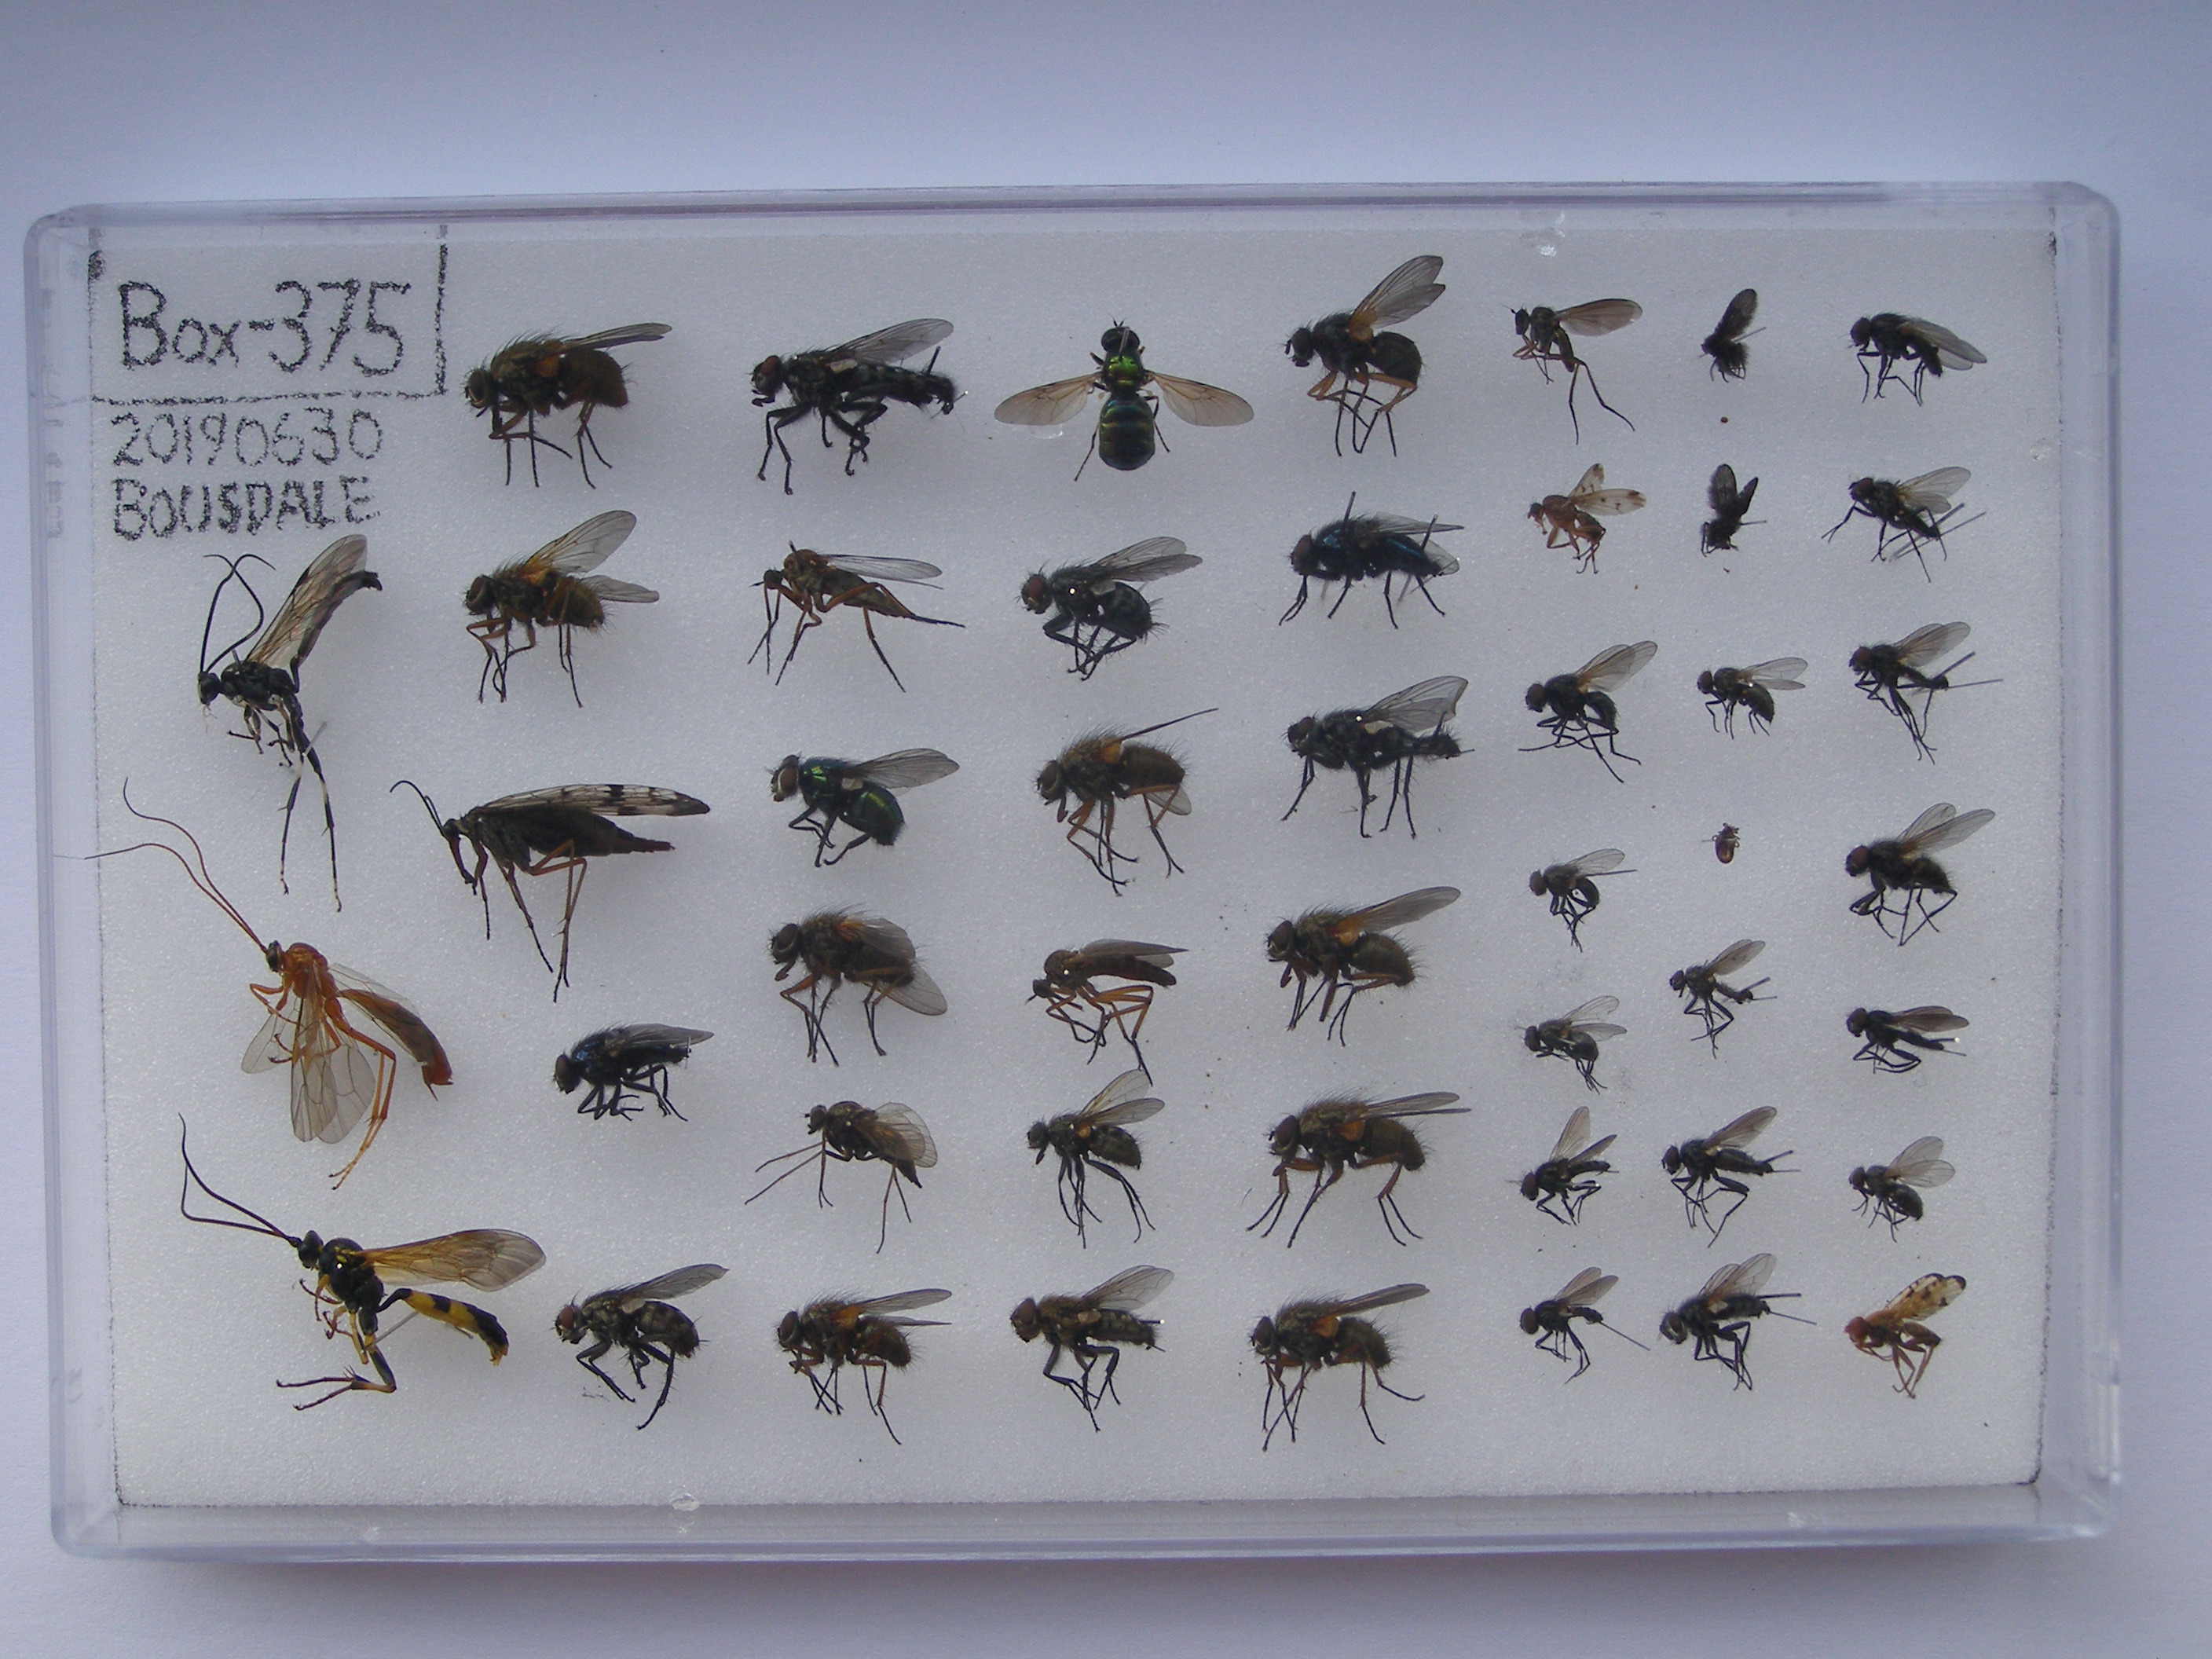 Box-375
20190630
BOUSDALE